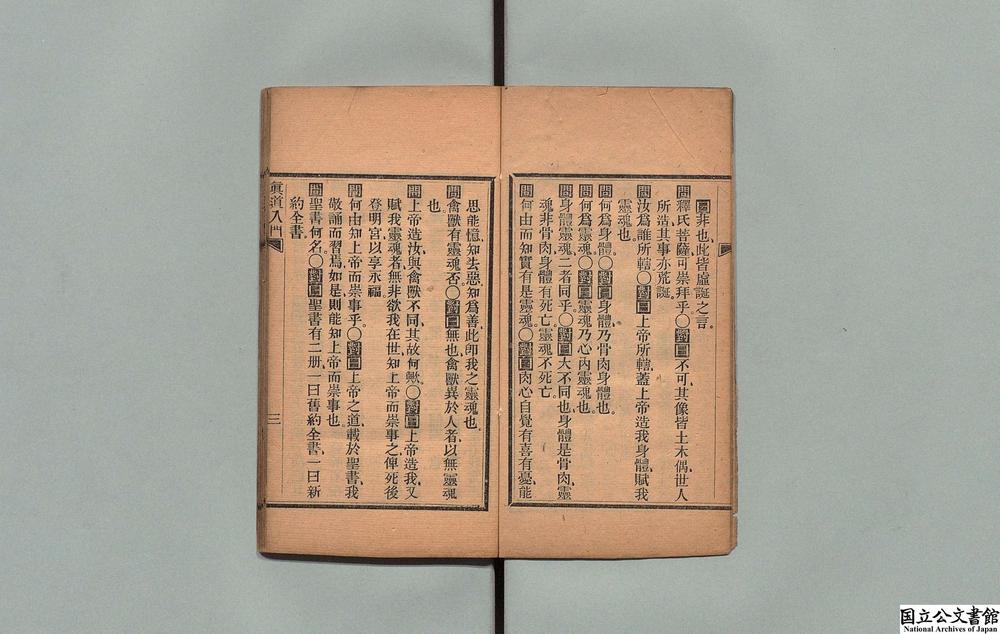 曰非也、此皆虛誕之言。
問釋氏菩薩可崇拜乎。〇對曰不可其像皆土木偶世人
所造其事亦荒誕。
問汝爲誰所轄〇對曰上帝所轄、蓋上帝造我身體、賦我
靈魂也。
問何爲身體。〇對曰身體乃骨肉身體也。
問何爲靈魂。〇對曰靈魂乃心內靈魂也。
問身體靈魂二者同乎。〇對曰大不同也身體是骨肉、靈
魂非骨肉、身體有死亡。靈魂不死亡。
問何由而知實有是靈魂。〇對曰肉心自覺有喜有憂、能
思能憶、知去惡、知爲善、此卽我之靈魂也。
問禽獸有靈魂否。〇對曰無也禽獸異於人者、以無靈魂
也。
問上帝造汝、與禽獸不同、其故何歟。〇對曰上帝造我、又
賦我靈魂者、無非欲我在世、知上帝而崇事之、俾死後
登明宮、以享永福。
問何由知上帝而崇事乎。〇對曰上帝之道、載於聖書、我
敬誦而習焉、如是則能知上帝而崇事也。
問聖書何名。〇對曰聖書有二册、一曰舊約全書、一曰新
約全書。
眞道入門
三
国立公文書館
National Archives of Japan